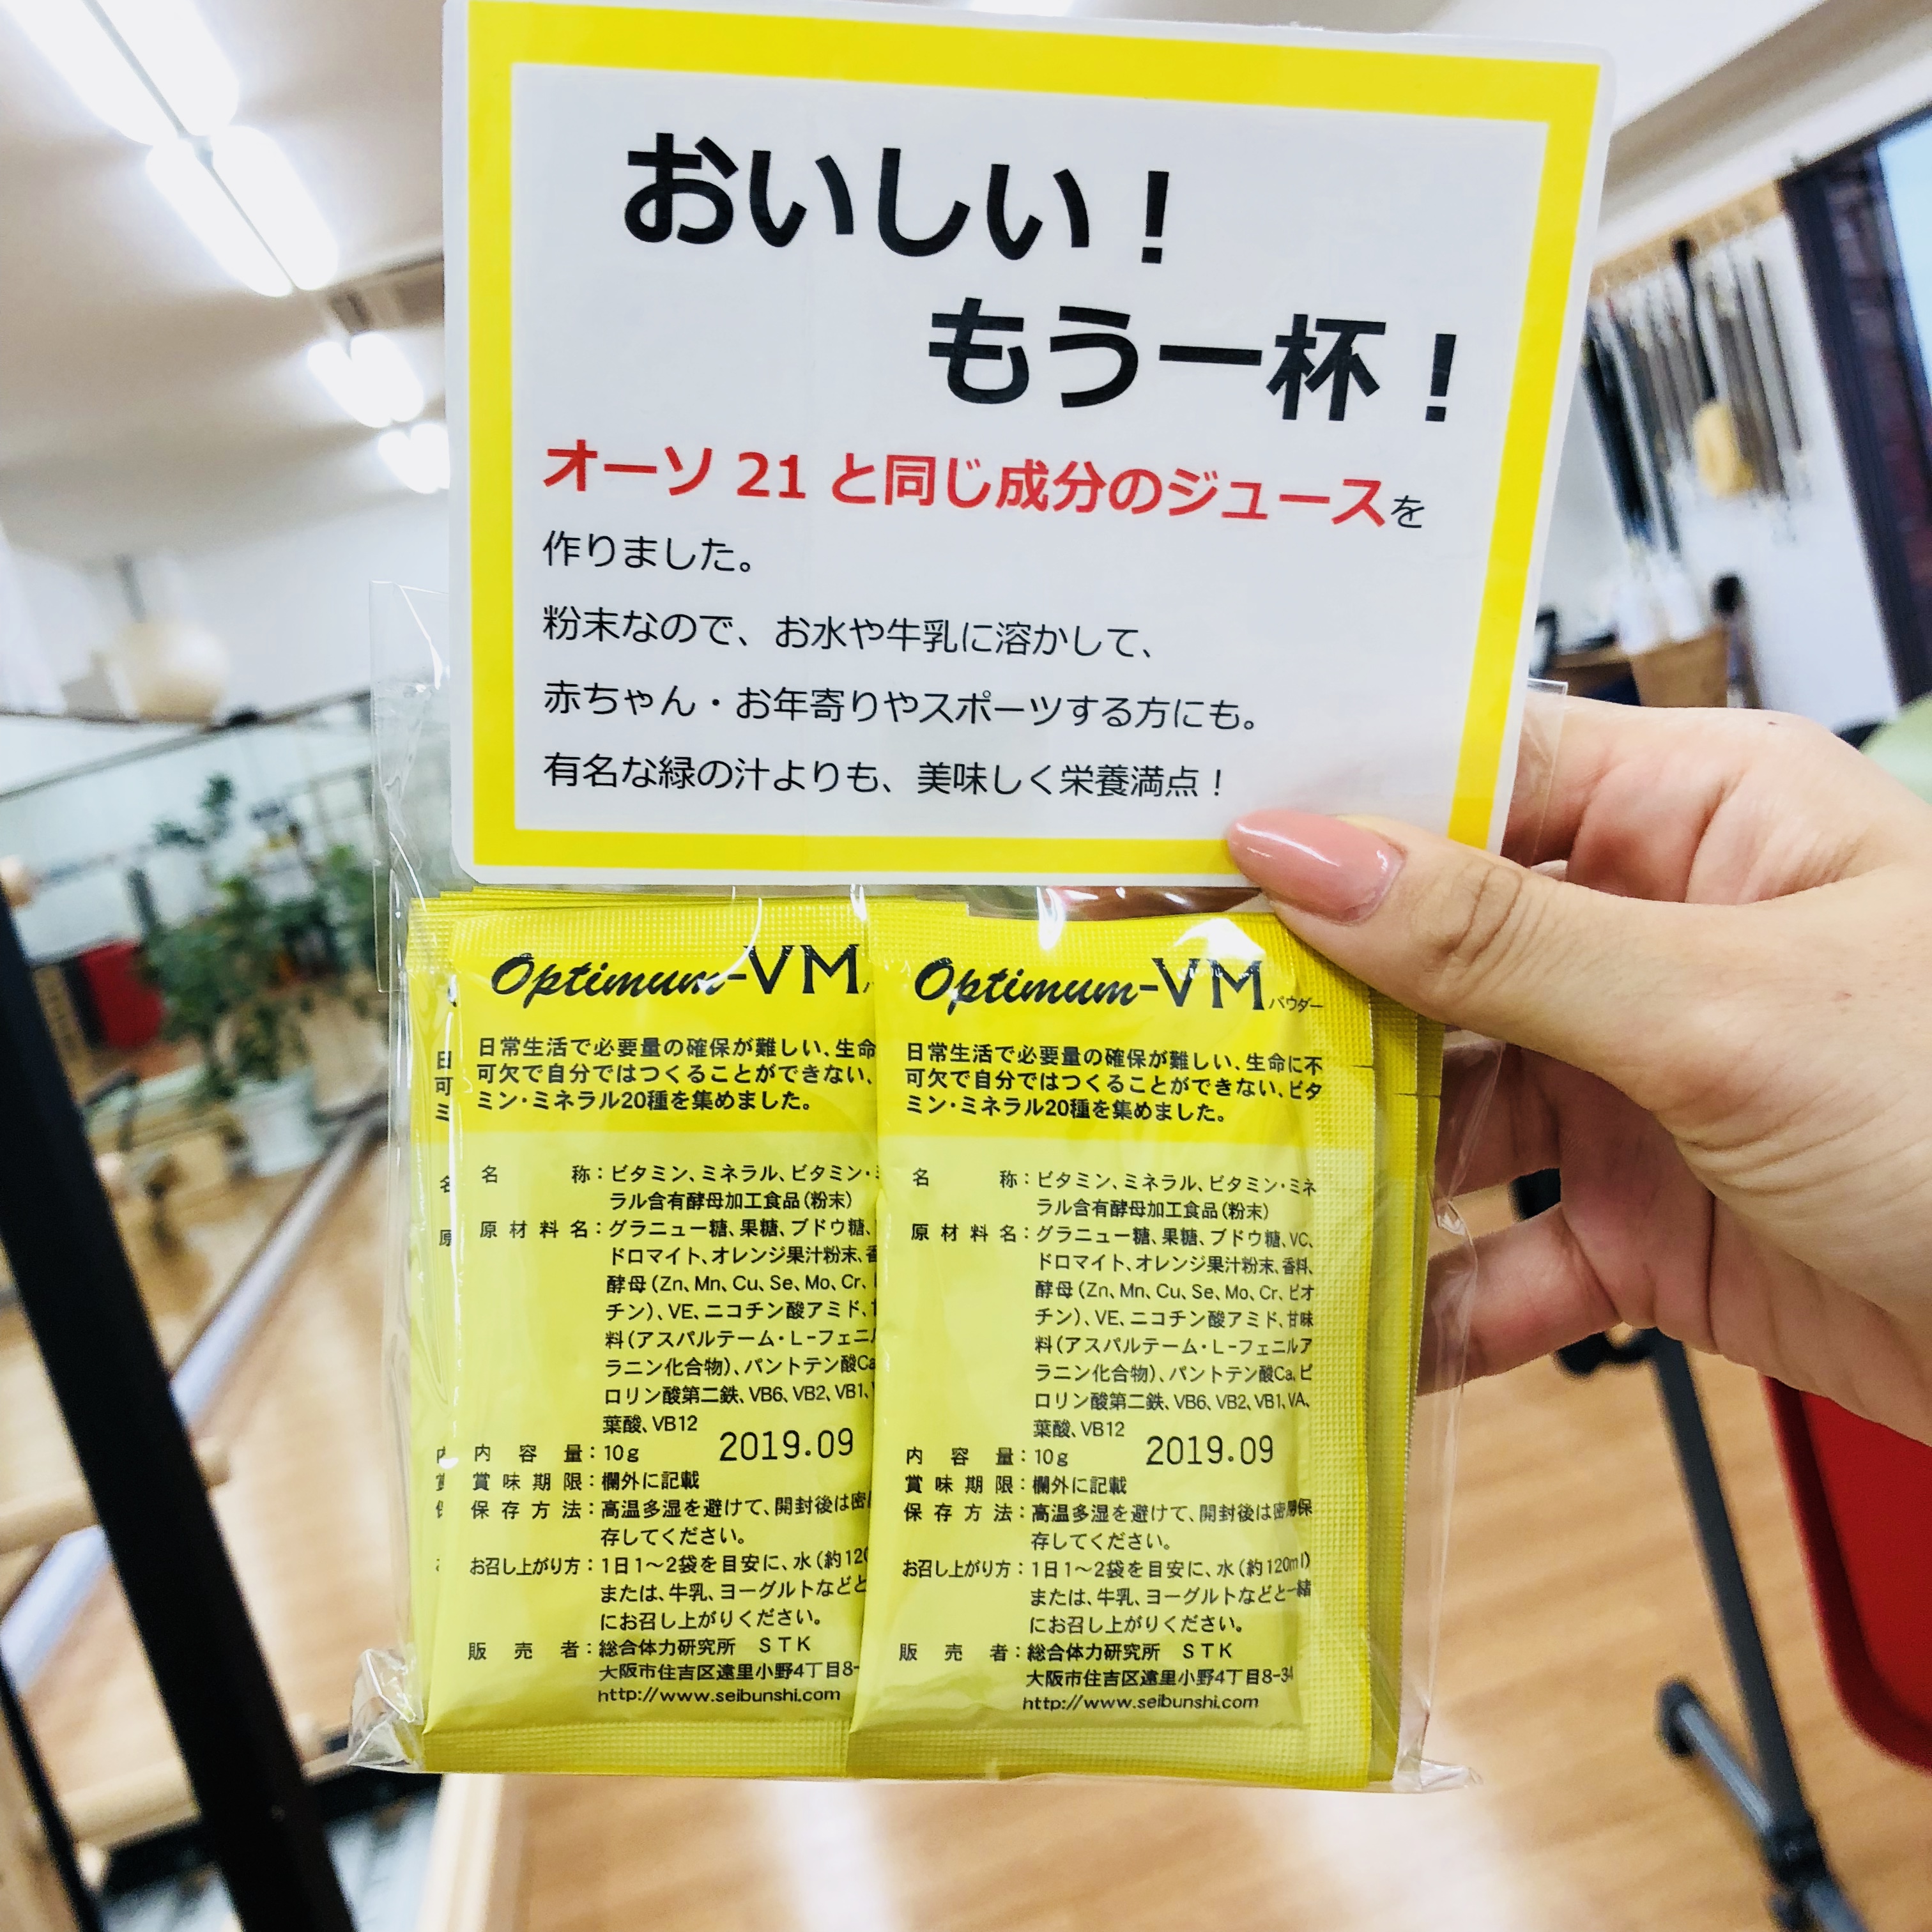 おいしい！
もう一杯！
オーソ 21 と同じ成分のジュースを
作りました。
粉末なので、お水や牛乳に溶かして、
赤ちゃん・お年寄りやスポーツする方にも。
有名な緑の汁よりも、美味しく栄養満点！
Optimum-VM
日常生活で必要量の確保が難しい、生命
可欠で自分ではつくることができない、
ミン・ミネラル20種を集めました。
名　　　称：ビタミン、ミネラル、ビタミン・
ラル含有酵母加工食品（粉末）
原材料名：グラニュー糖、果糖、ブドウ糖、
ドロマイト、オレンジ果汁粉末、
酵母（Zn、Mn、Cu、Se、Mo、Cr、
チン）、VE、ニコチン酸アミド、
料（アスパルテーム・L-フェニル
ラニン化合物）、パントテン酸Ca
ロリン酸第二鉄、VB6、VB2、VB1、
葉酸、VB12
内容量：10g 2019.09
賞味期限：欄外に記載
保存方法：高温多湿を避けて、開封後は密
存してください。
お召し上がり方：1日1～2袋を目安に、水（約120
または、牛乳、ヨーグルトなどと
にお召し上がりください。
販売者：総合体力研究所　STK
大阪市住吉区遠里小野4丁目8-
http://www.seibunshi.com
Optimum-VMパウダー
日常生活で必要量の確保が難しい、生命に不
可欠で自分ではつくることができない、ビタ
ミン・ミネラル20種を集めました。
名　　　称：ビタミン、ミネラル、ビタミン・ミネ
ラル含有酵母加工食品（粉末）
原材料名：グラニュー糖、果糖、ブドウ糖、VC、
ドロマイト、オレンジ果汁粉末、香料、
酵母（Zn、Mn、Cu、Se、Mo、Cr、ビオ
チン）、VE、ニコチン酸アミド、甘味
料（アスパルテーム・L-フェニルア
ラニン化合物）、パントテン酸Ca、ピ
ロリン酸第二鉄、VB6、VB2、VB1、VA、
葉酸、VB12
内容量：10g 2019.09
賞味期限：欄外に記載
保存方法：高温多湿を避けて、開封後は密閉保
存してください。
お召し上がり方：1日1～2袋を目安に、水（約120ml）
または、牛乳、ヨーグルトなどと一緒
にお召し上がりください。
販売者：総合体力研究所　STK
大阪市住吉区遠里小野4丁目8-34
http://www.seibunshi.com